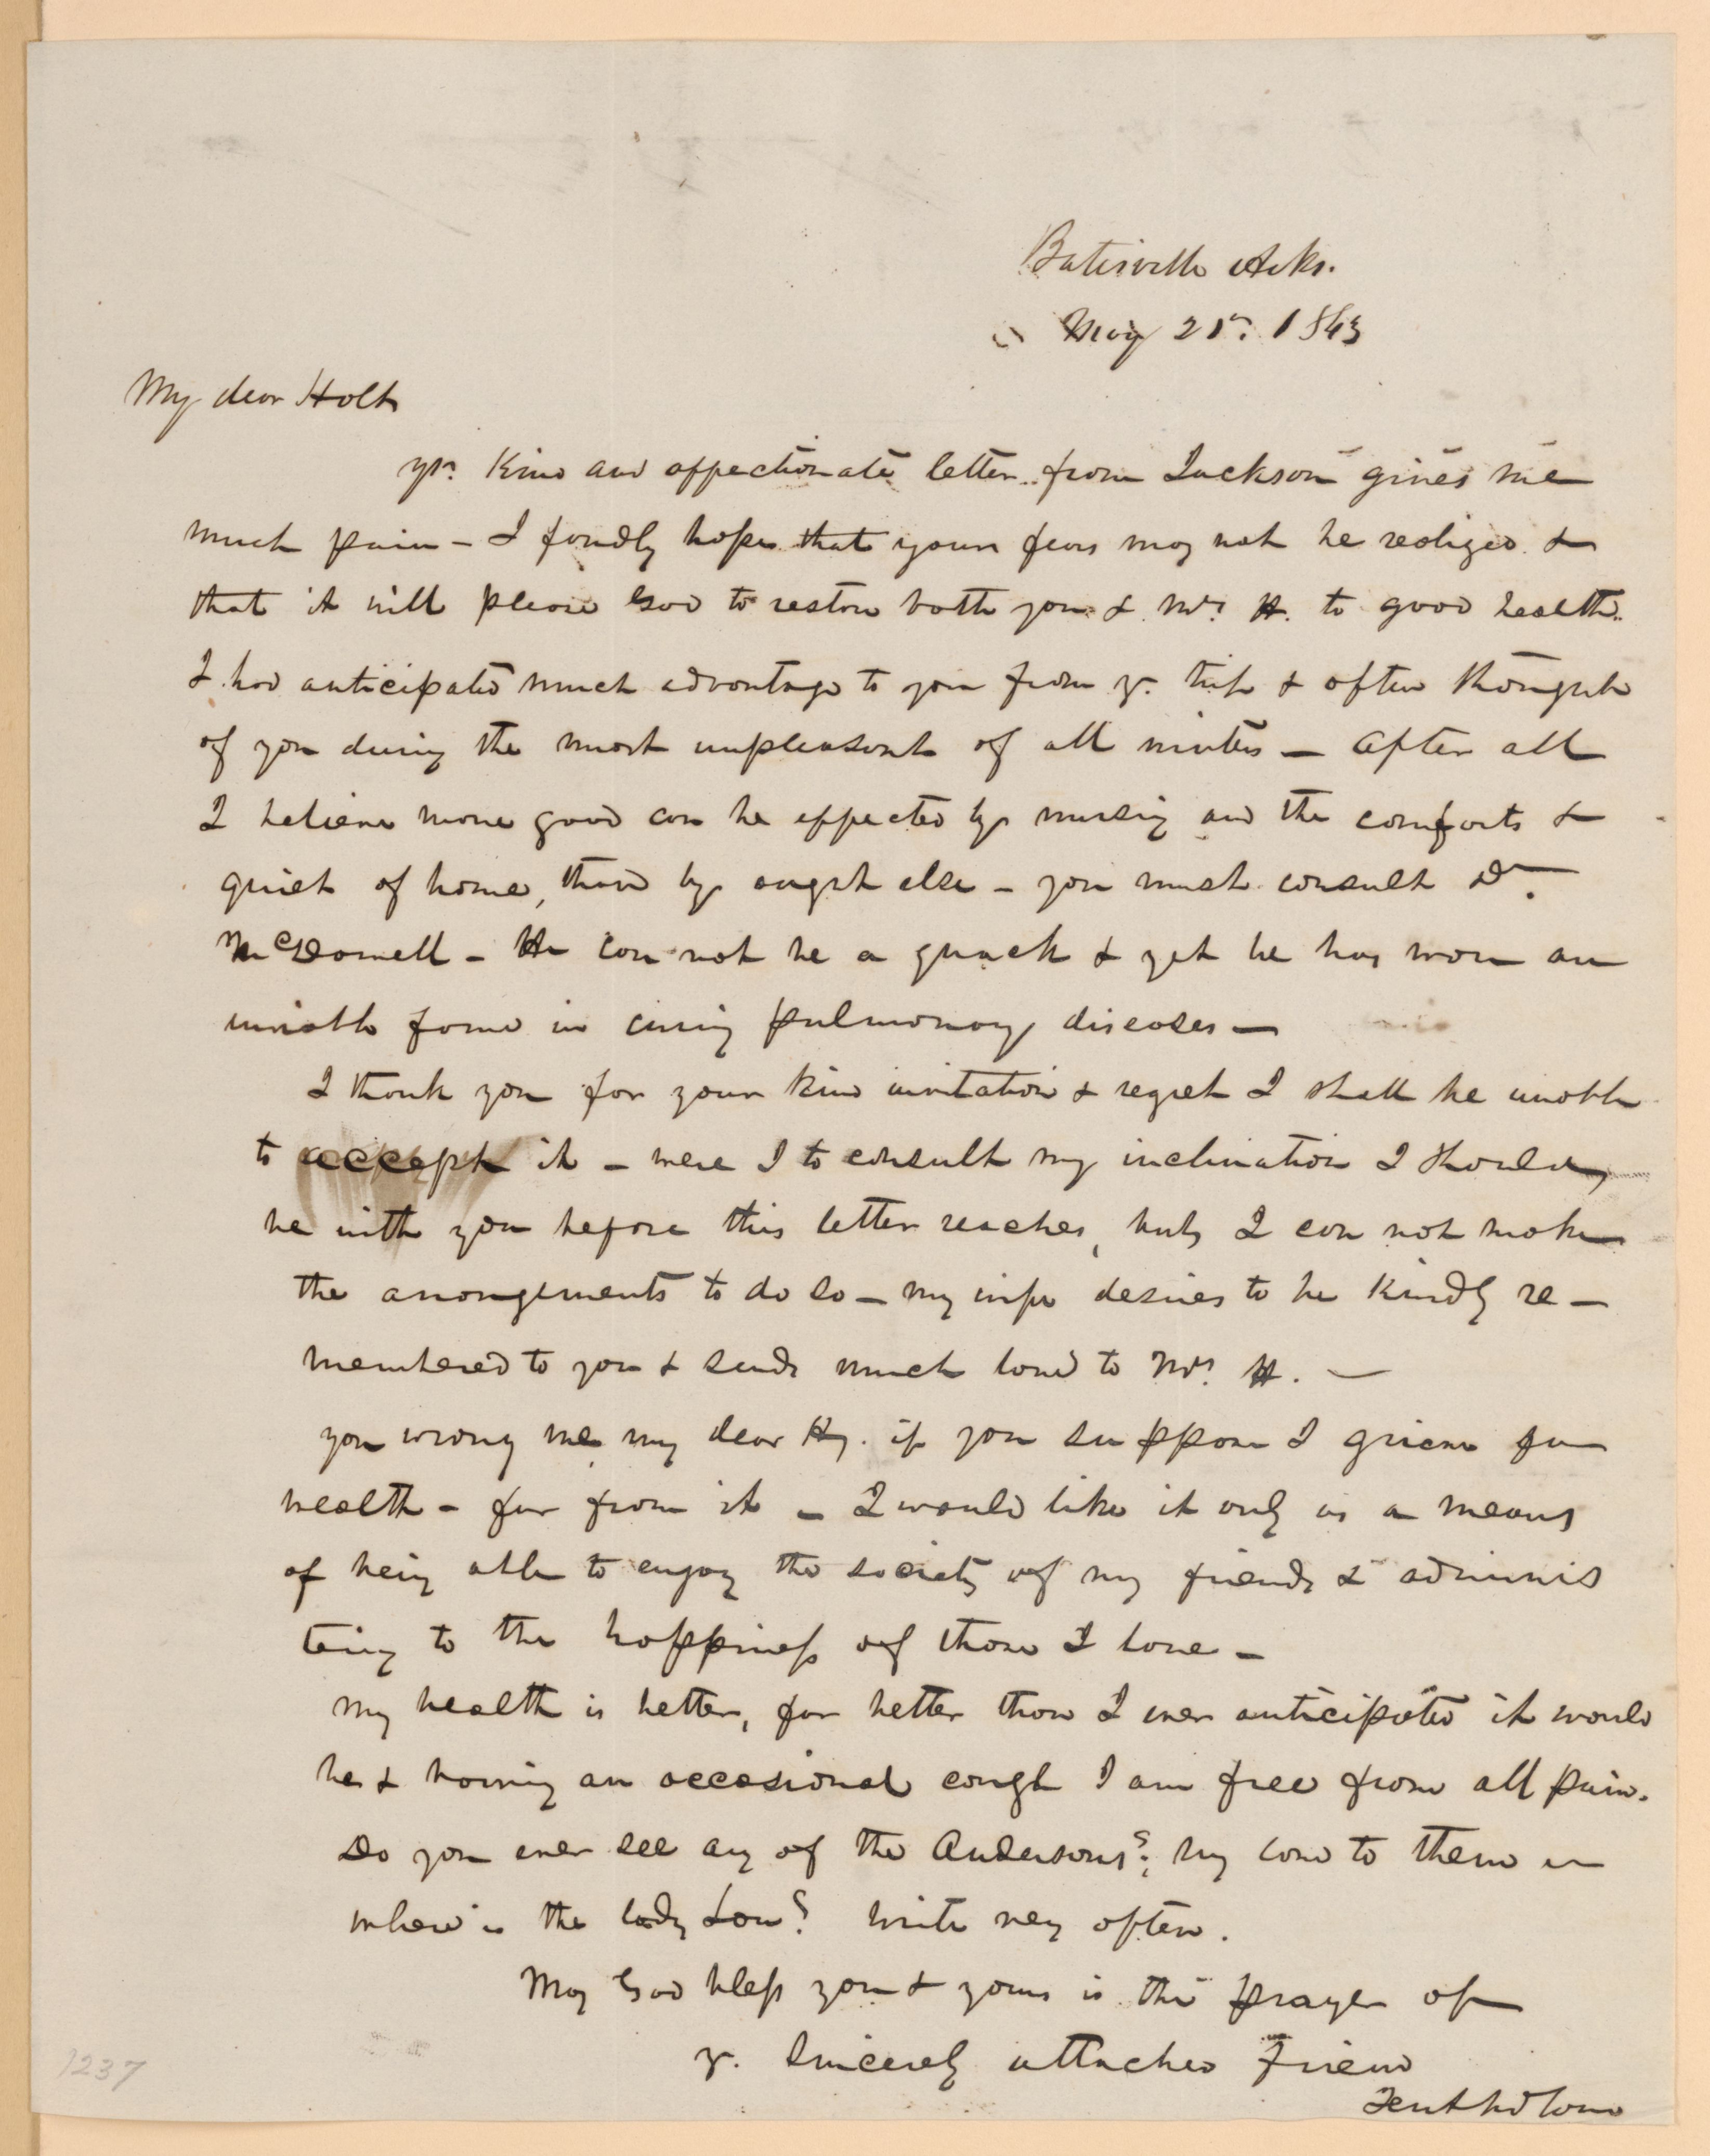 Batesville Arks.
May 21st. 1843
My dear Holt
yr. kind and affectionate letter from Jackson gives me
much pain – I fondly hope that your fears may not be realized &
that it will please God to restore both you & Mrs. H. to good health.
I had anticipated much advantage to you from yr. trip & often thought
of you during the most unpleasant of all winters – After all
I believe more good can be effected by nursing and the comforts &
quiet of home, than by aught else – you must consult Dr.
McDowell – He can not be a quack & yet he has won an
enviable fame in curing pulmonary diseases –
I thank you for your kind invitation & regret I shall be unable
to accept it – were I to consult my inclination I should
be with you before this letter reaches, but I can not make
the arrangements to do so – my wife desires to be kindly re –
membered to you & sends much love to Mrs. H. –
you wrong me my dear Hy. if you suppose I grieve for
wealth – far from it – I would like it only as a means
of being able to enjoy the society of my friends & adminis
tering to the happiness of those I love –
My health is better, far better than I ever anticipated it would
be & having an occasional cough I am free from all pain.
Do you ever see any of the Andersons? My love to them –
where is the lady Lou? Write very often.
May God bless you & yours is the prayer of
yr. Sincerely attached Friend
1237